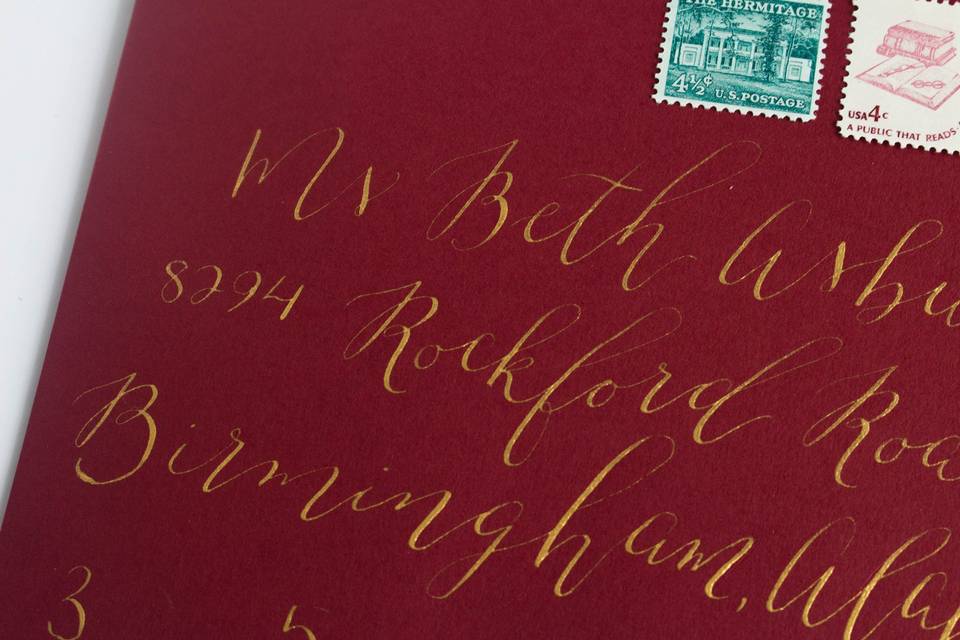 THE HERMITAGE
4½¢ U.S. POSTAGE
USA 4c
A PUBLIC THAT READS
Ms Beth
8294 Rockford
Birmingham,
3 5